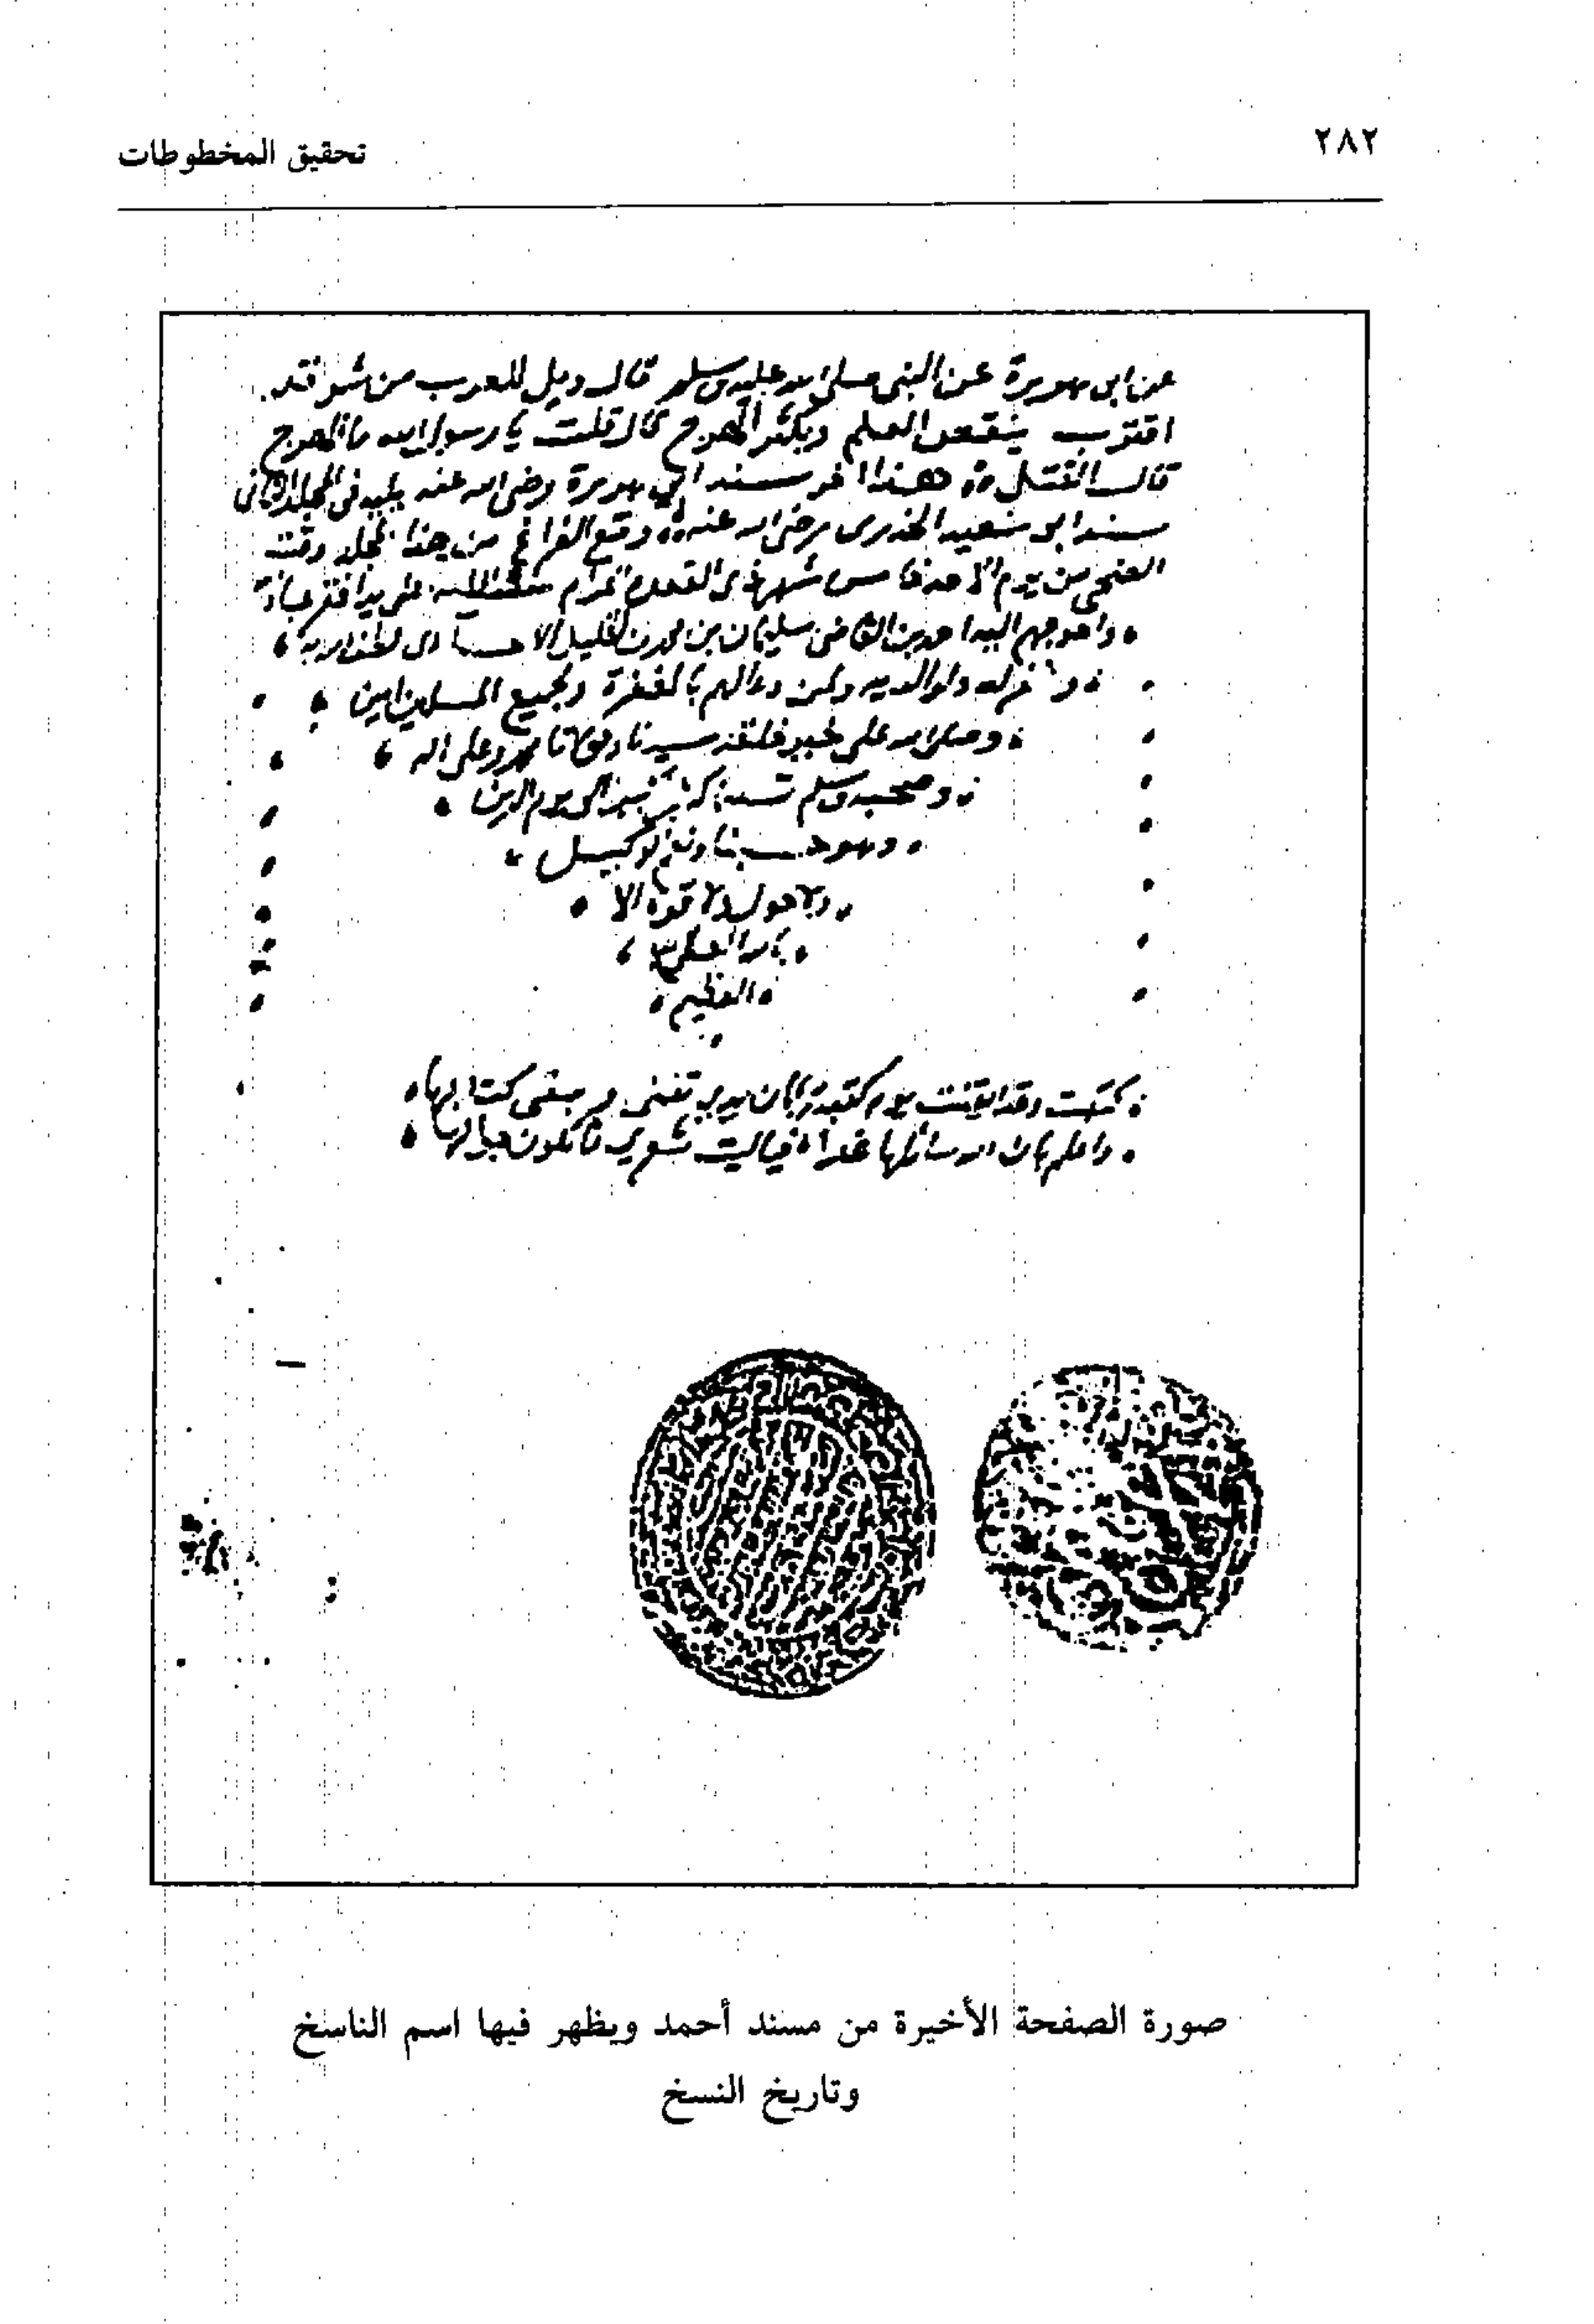 ٢٨٢
تحقيق المخطوطات
عن ابى هريرة عن النبى صلى الله عليه وسلم قال ويل للعرب من شر قد
اقترب ينقص العلم ويكثر الهرج قال قلت يا رسول الله ما الهرج
قال القتل هذا اخر مسند ابي هريرة رضى الله عنه يليه فى المجلد الثانى
مسند ابى سعيد الخدرى رضى الله عنه وقع الفراغ من هذا المجلد وقت
الضحى من يوم الاحد خامس شهر ذى القعدة الحرام على يد افقر عباد
واحوجهم اليه احمد بن القاضى سليمان بن الاحسا لطف الله به
و غفر له ولوالديه ولمن دعا لهم بالمغفرة ولجميع المسلمين امين
وصلى الله على خير خلقه سيدنا ومولانا محمد وعلى اله
وصحبه وسلم كثيرا الى يوم الدين
وهو حسبنا ونعم الوكيل
ولا حول ولا قوة الا
بالله العلى
العظيم
كتبت وقد ايقنت يوم كتبت بان يدي تفنى و يبقى كتابها
واعلم بان الله سائلها غدا فياليت شعري ما يكون جوابها
صورة الصفحة الأخيرة من مسند أحمد ويظهر فيها اسم الناسخ
وتاريخ النسخ